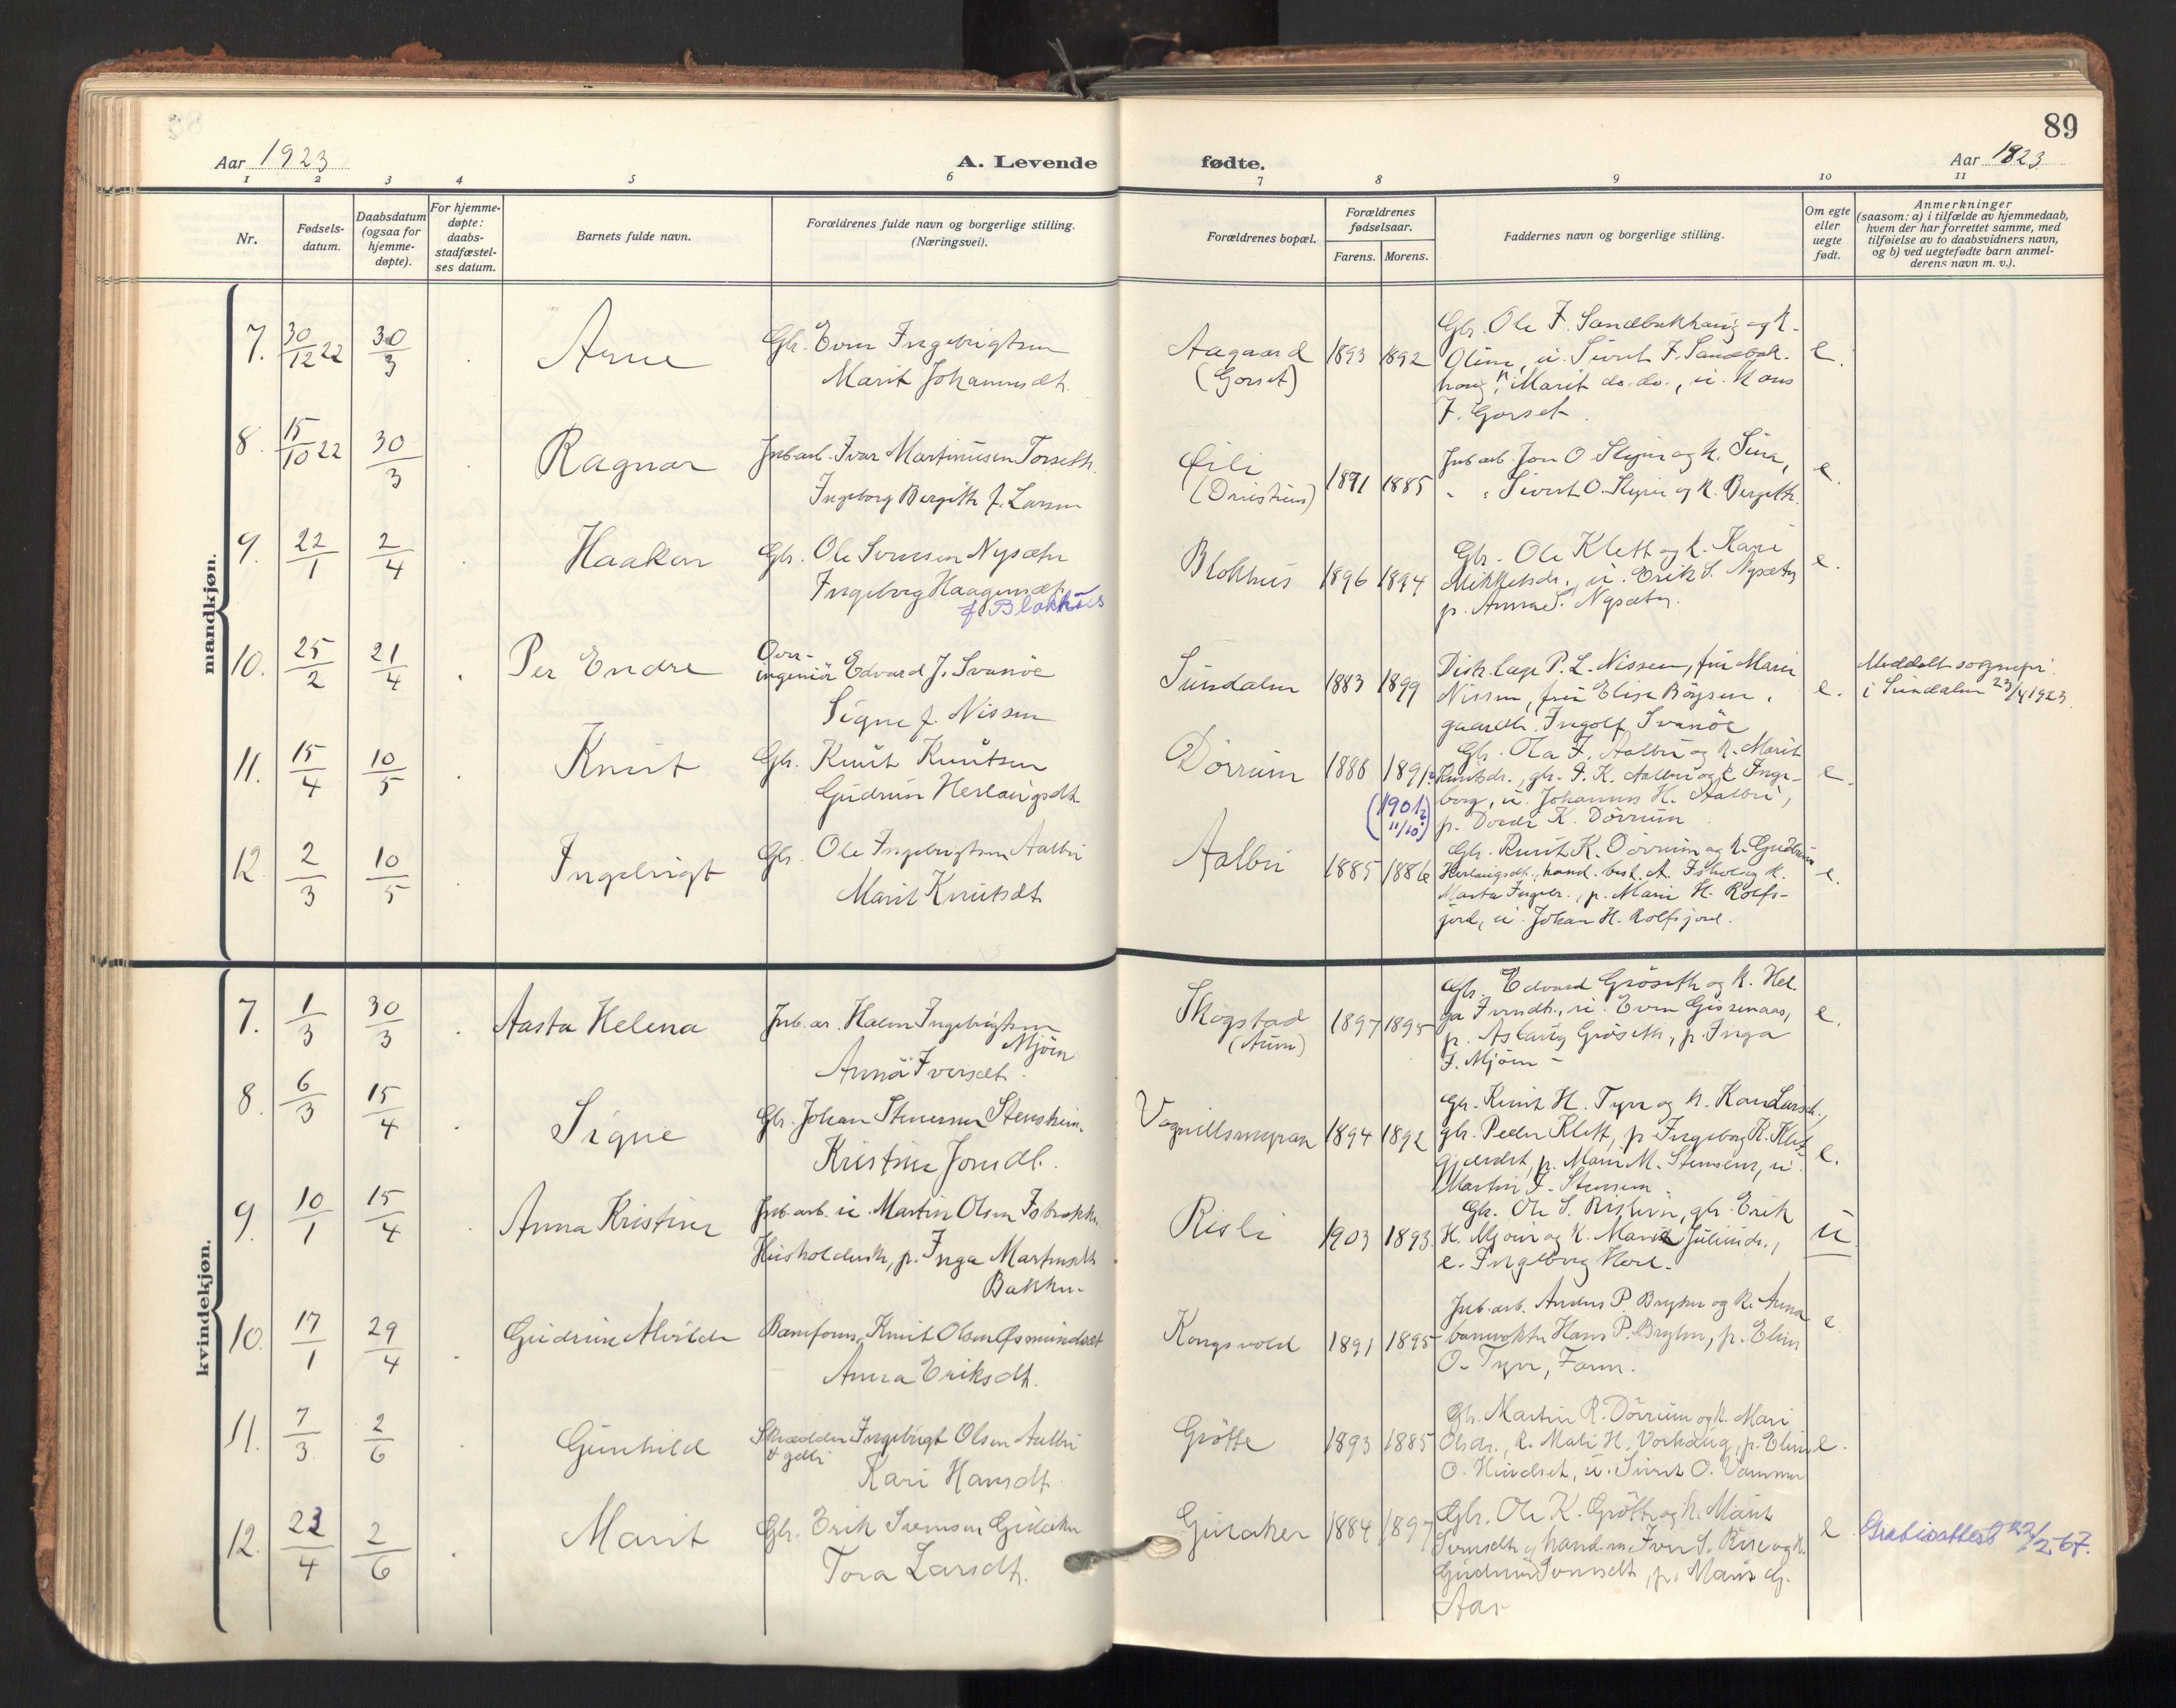 89
Aar 1923
A. Levende
fødte.
Aar 1923
1 2 3 4 5 6 7 8 9 10 11
Nr.
Fødsels-
datum.
Daabsdatum
(ogsaa for
hjemme-
døpte).
For hjemme-
døpte:
daabs-
stadfæstel-
ses datum.
Barnets fulde navn.
Forældrenes fulde navn og borgerlige stilling.
(Næringsvei).
Forældrenes bopæl.
Forældrenes
fødselsaar.
Farens. Morens.
Faddernes navn og borgerlige stilling.
Om egte
eller
uegte
født.
Anmerkninger
(saasom: a) i tilfælde av hjemmedaab,
hvem der har forrettet samme, med
tilføielse av to daabsvidners navn,
og b) ved uegtefødte barn anmel-
derens navn m. v.).
mandkjøn.
7. 30/12 22 30/3 Arne
Gbr. Even Ingebrigtsen
Marit Johannesdt.
Aagaard
(Gorset)
1893 1892
Gbr. Ole F. Sandbækhaug og k.
Oline, u. Sivert F. Sandbæk-
haug, Marit do. do., u. Hans
F. Gorset
e.
8. 15/10 22 30/3 Ragnar
Jnb.arb. Ivar Martinusen Torseth.
Ingeborg Bergith f. Larsen
(Driustuen)
1891 1885
Jnb.arb. Jon O. og k.
Sivert O. og k. Bergith.
e.
9. 22/1 2/4 Haakon
Gbr. Ole Nysæter
Ingeborg Haagensdt.
f. Blokhus
Blokhus
1896 1894
Gbr. Ole Klett og k. Kari
Mikkelsdr., u. Erik S. Nysæter
p. Anna S. Nysæter.
e.
10. 25/2 21/4 Per Endre
Over-
ingeniör Edvard J. Svanöe
Signe f. Nissen
Sundalen
1883 1899
Distr.læge P. L. Nissen, fru Marie
Nissen, fru Elise
Ingolf Svanöe
e.
Meddelt sognepr.
i Sundalen 23/4 1923.
11. 15/4 10/5 Knut
Gbr. Knut Knutsen
Gudrun Herlaugsdt.
Dörrum
1886 1891?
(1901?
11/10)
Gbr. Ola I. Aalbu og k. Marit
Knutsdr., gbr. I. K. Aalbu og k. Inge-
borg, u. Johannes K. Aalbu,
p. Dordi K. Dörrum
e.
12. 2/3 10/5 Ingebrigt
Gbr. Ole Ingebrigtsen Aalbu
Marit Knutsdt.
Aalbu
1885 1886
Gbr. Knut K. Dörrum og k. Gudrun
Herlaugsdt., hand. best. A. og k.
Marta p. Marie H. Rolfs-
jord, u. Johan H. Rolfsjord.
e.
kvindekjøn.
7. 1/3 30/3 Aasta Helena
Jnb.ar. Ingebrigtsen
Mjöen
Anna Iversdt.
Skogstad
(Aune)
1897 1895
Gbr. Edvard Gröseth og k. Hel-
ga u. Even Gissenaas,
p. Aslaug Gröseth, p. Inga
I. Mjöen
e.
8. 6/3 15/4 Signe
Gbr. Johan Stenersen Stensheim.
Kristine Jonsdt.
Vognillsmyran
1894 1892
Gbr. Knut H. Tyre og k. Karen Larsdt.,
gbr. Peder Klett, p. Ingeborg K. Klett
p. Mari M. Stensen, u.
Martin I. Stensen
e.
9. 10/1 15/4 Anna Kristine
Jnb.arb. u. Martin Olsen Isbrekken
Husholdersk, p. Inga Martinsdt.
Bakken.
Risli
1903 1893
Gbr. Ole S. gbr. Erik
H. Mjöen og k. Marie
e. Ingeborg
u
10. 17/1 29/4 Gudrun Alvilde
Baneform. Knut Olsen
Anna Eriksdt.
Kongsvold
1891 1895
Jnb.arb. Anders P. og k. Anna
banevokter Hans P. p. Elin
O. Tyre,
e
11. 7/3 2/6 Gunhild
Skrædder Ingebrigt Olsen Aalbu
& gdbr.
Kari Hansdt.
Grötte
1893 1885
Gbr. Martin R. Dörrum og k. Mari
Olsdr., k. Mali H. Vorhaug, p. Elin
O. Hindset, u. Sivert O.
e.
12. 23/4 2/6 Marit
Gbr. Erik Gulaker
Tora Larsdt.
Gulaker
1884 1897
Gbr. Ole K. Grötte og k. Marit
hand.m. Iver S. Rise og k.
Gudrun p. Marit
Aas
e
Gratisattest 22/2-67.